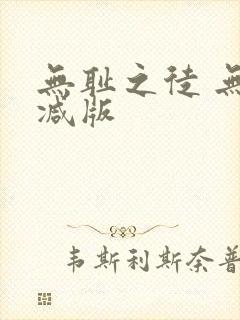 無耻之徒 無
减版
韦斯利斯奈普